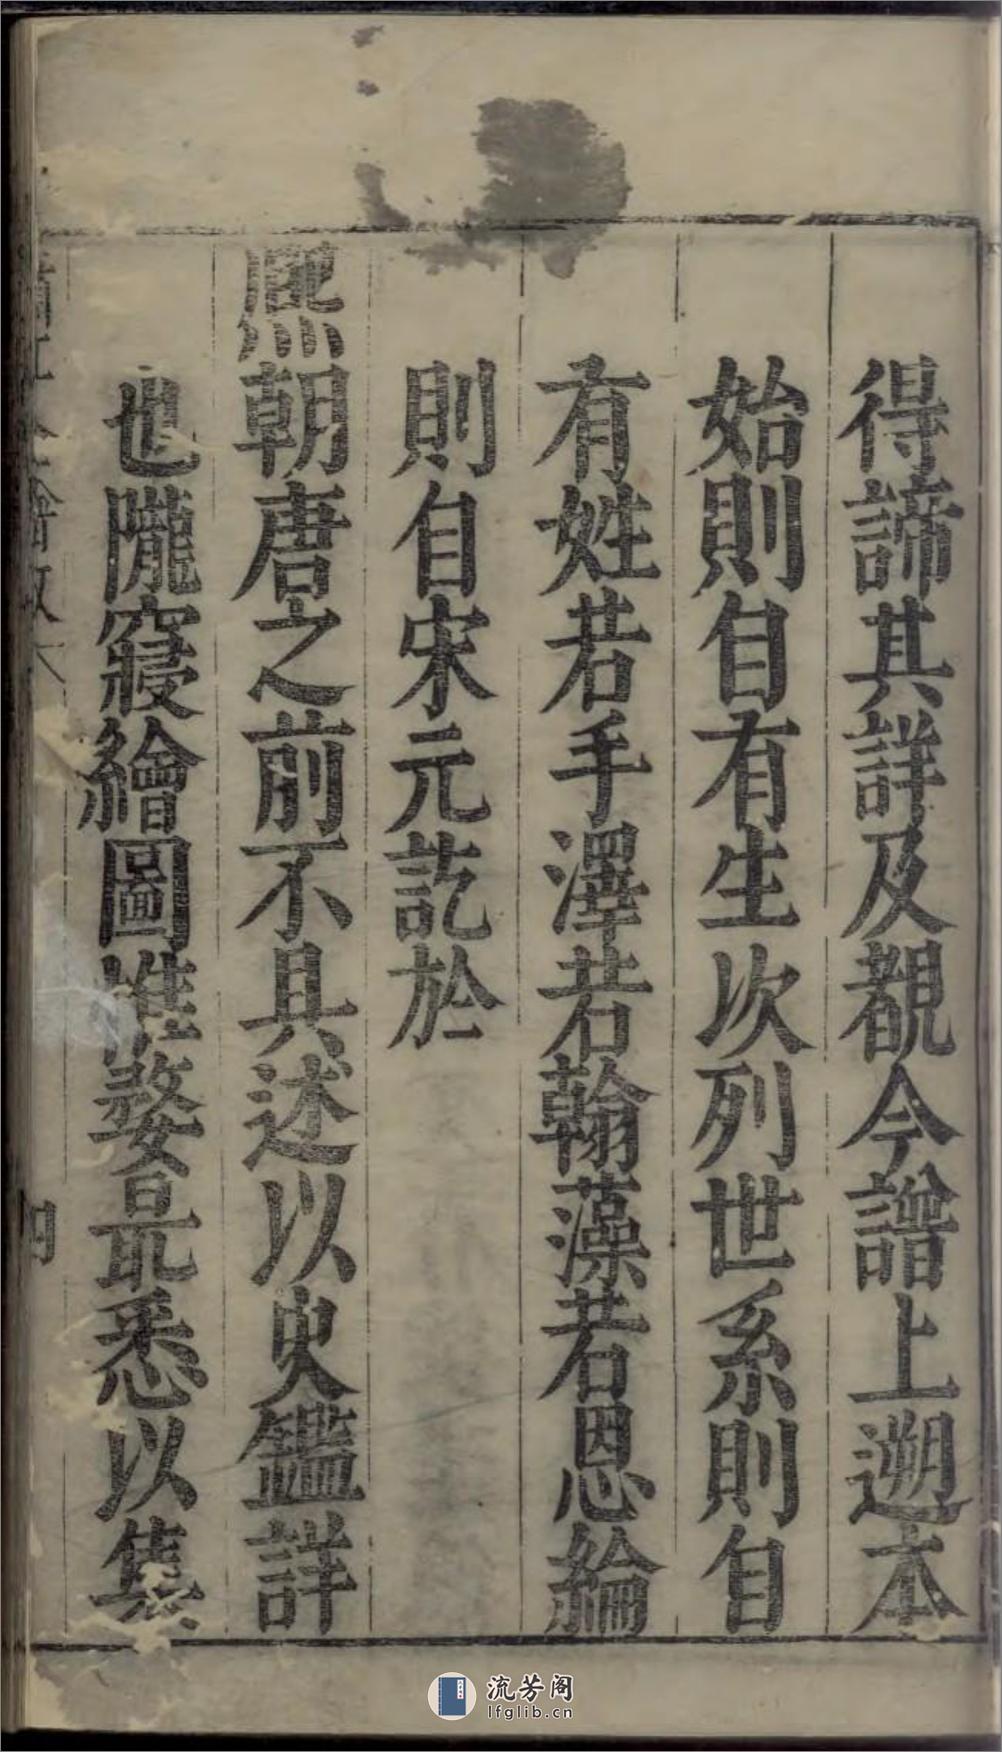 得諦其詳及覩今譜上遡本
始則自有生次列世系則自
有姓若手澤若翰藻若恩綸
則自宋元訖於
熈朝唐之前不具述以史鑑詳
也隴寢繪圖惟婺最悉以集
四
流芳阁
lfglib.cn